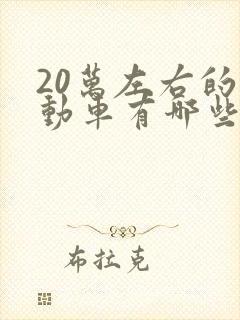 20萬左右的
動車有哪些
布拉克